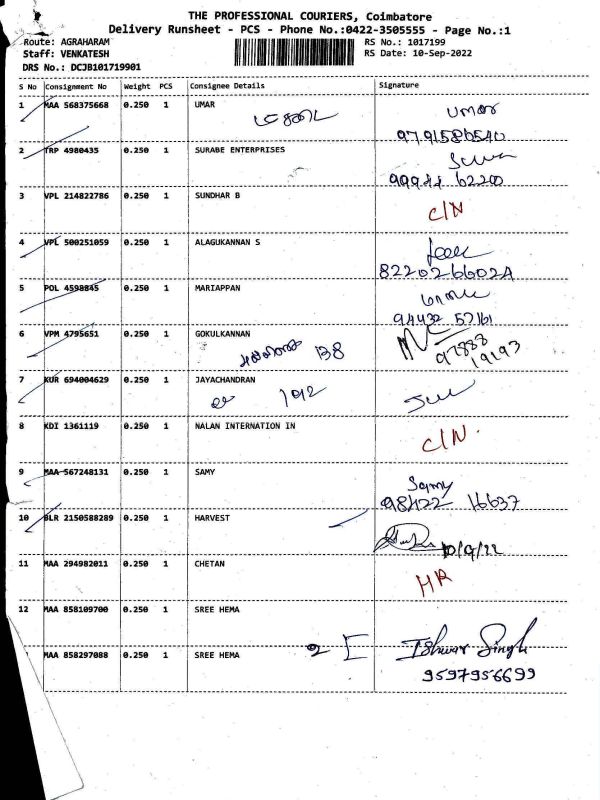 THE PROFESSIONAL COURIERS, Coimbatore
Delivery Runsheet - PCS - Phone No.:0422-3505555 - Page No.:1
Route: AGRAHARAM
RS No.: 1017199
Staff: VENKATESH
RS Date: 10-Sep-2022
DRS No.: DCJB101719901
S No Consignment No Weight PCS Consignee Details Signature
1 MAA 568375668 0.250 1 UMAR
2 TRP 4980435 0.250 1 SURABE ENTERPRISES
3 VPL 214822786 0.250 1 SUNDHAR B C/N
4 VPL 500251059 0.250 1 ALAGUKANNAN S
5 POL 4598845 0.250 1 MARIAPPAN
6 VPM 4795651 0.250 1 GOKULKANNAN
138
97888
19193
7 KUR 694004629 0.250 1 JAYACHANDRAN
8 KDI 1361119 0.250 1 NALAN INTERNATION IN C/N.
9 MAA 567248131 0.250 1 SAMY Samy
98422 16637
10 BLR 2150588289 0.250 1 HARVEST
10/9/22
11 MAA 294982011 0.250 1 CHETAN
12 MAA 858109700 0.250 1 SREE HEMA
MAA 858297088 0.250 1 SREE HEMA 2 Ishwar Singh
9597956699